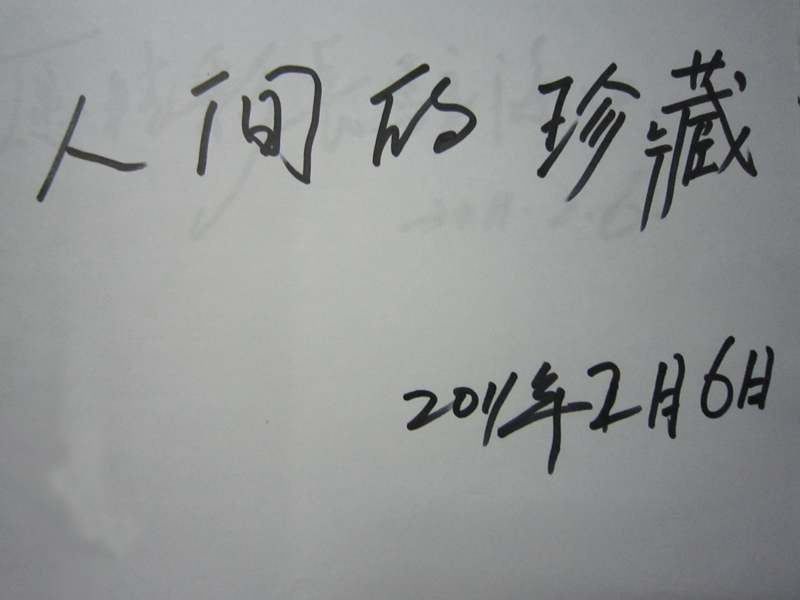 人间的珍藏
2011年2月6日